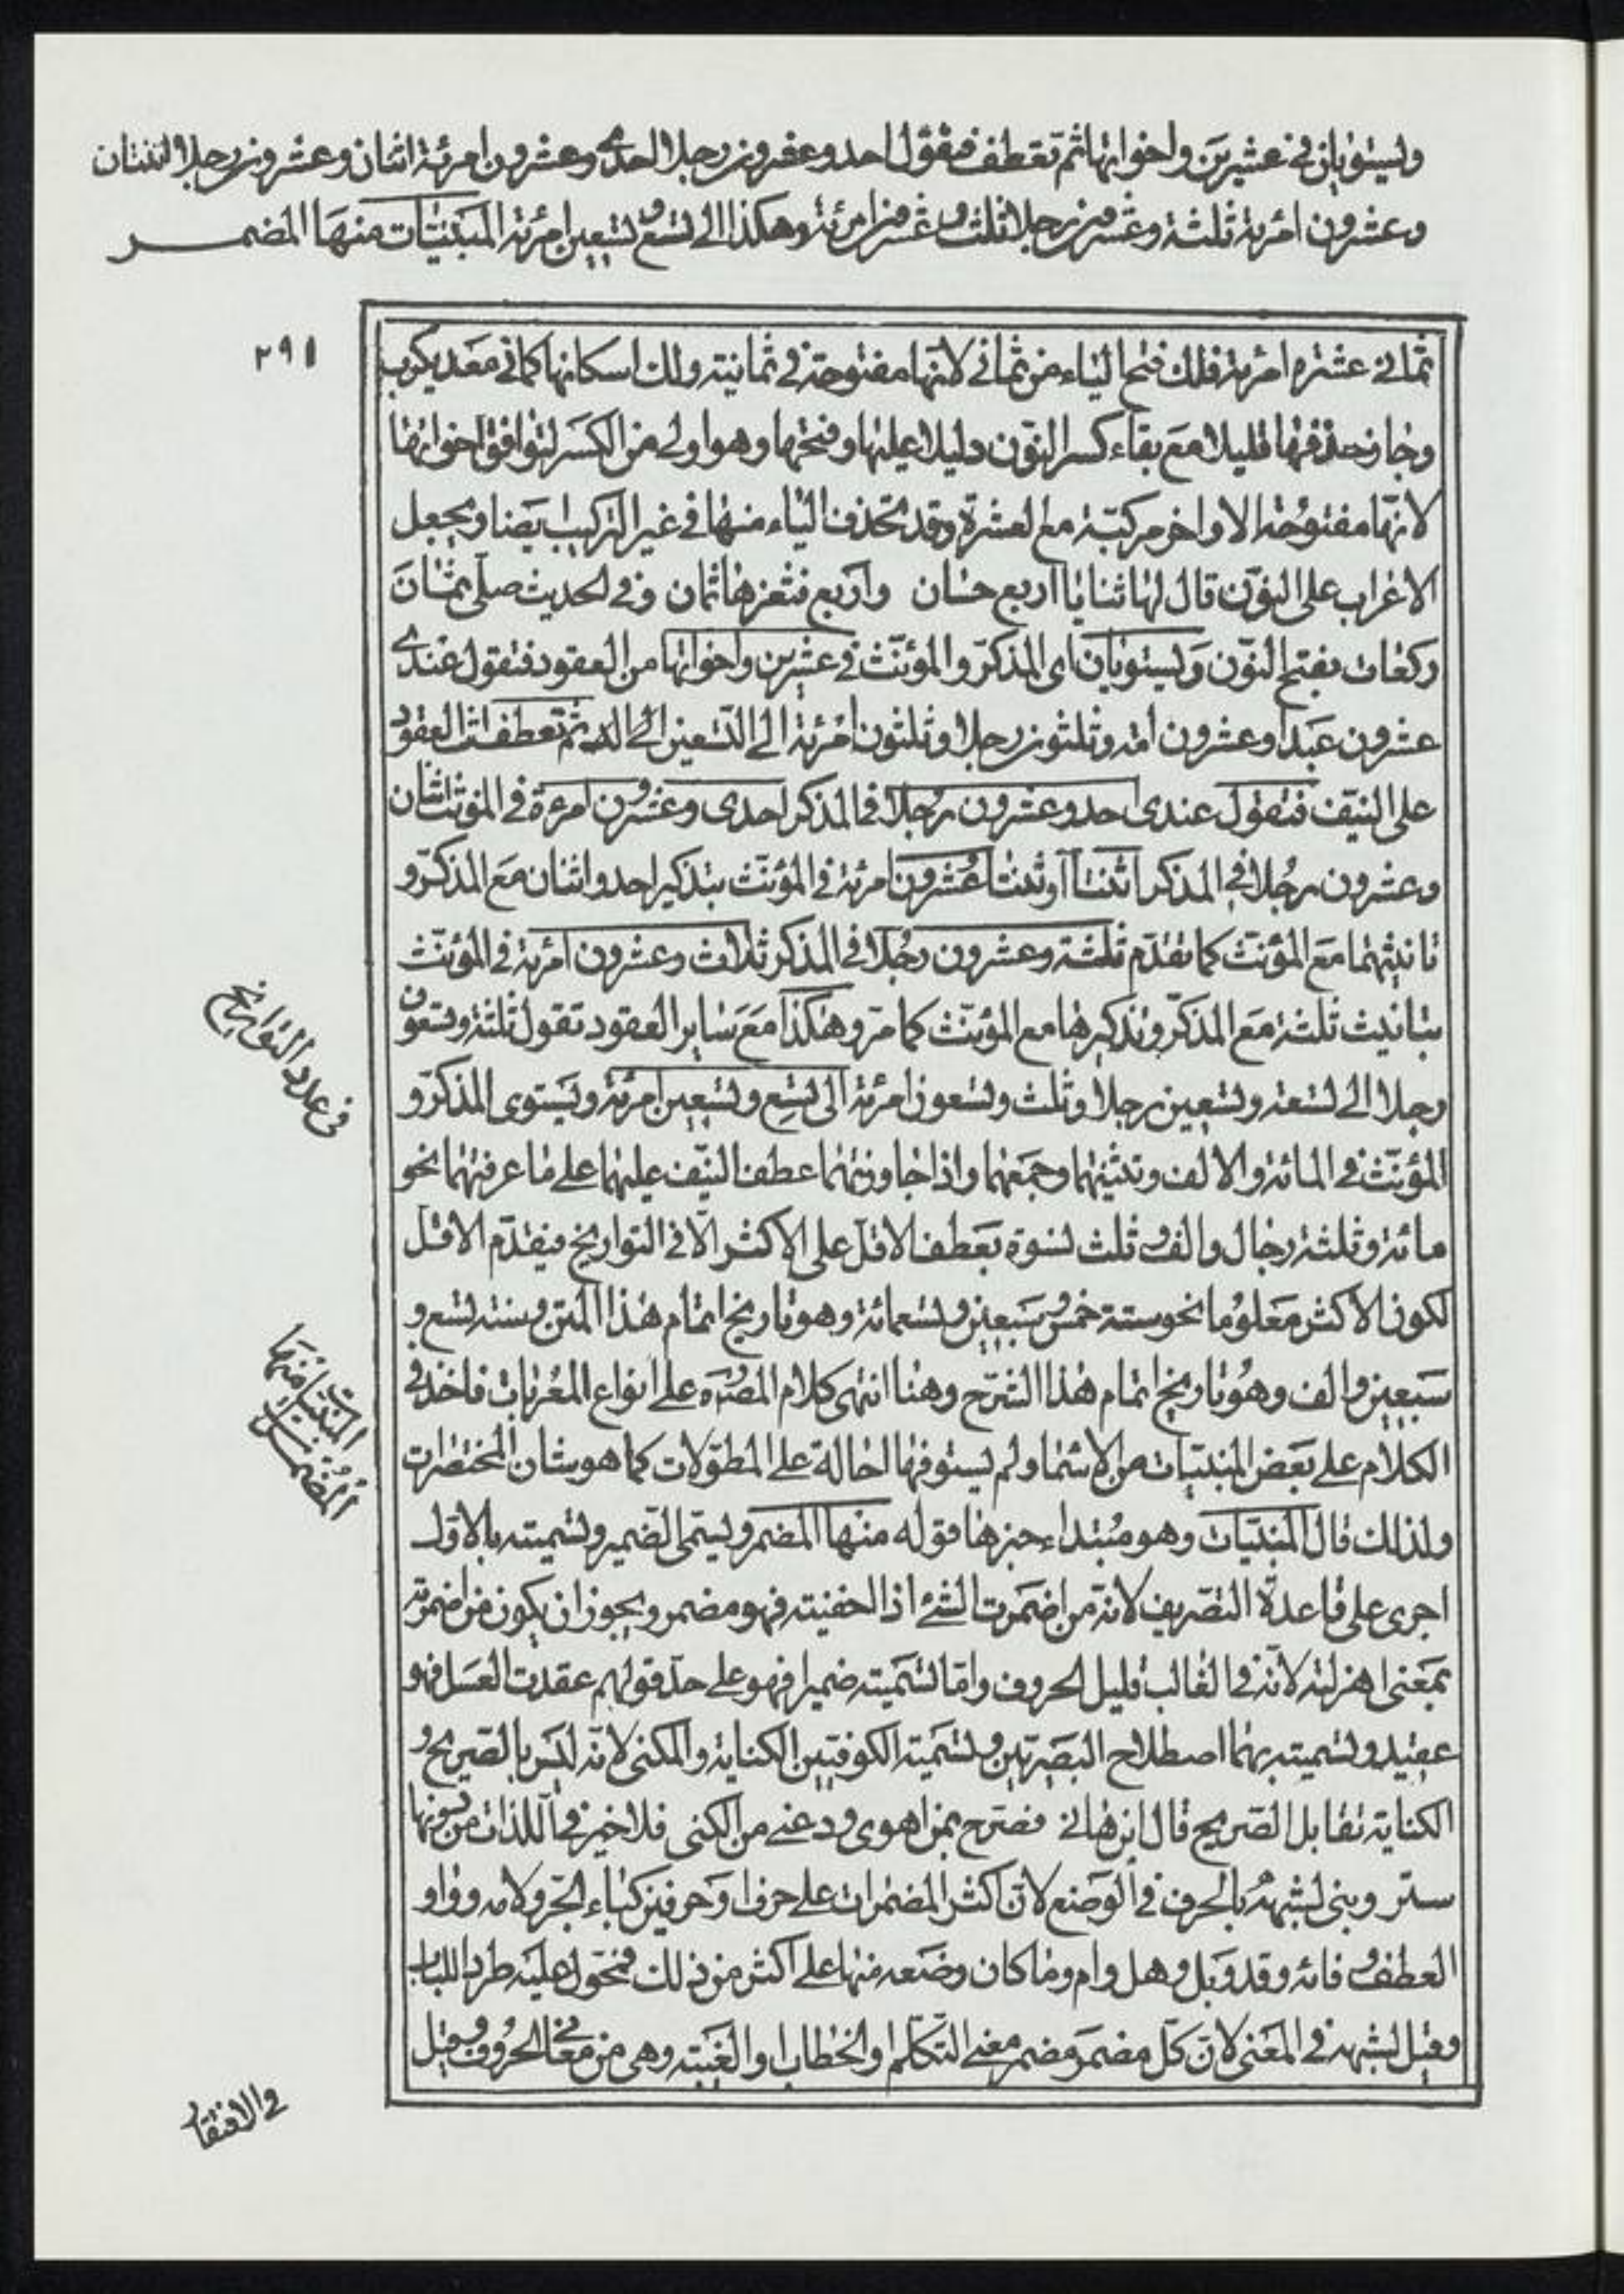 ويستويان في عشرين واخواتها ثم تعطف فتقول احد وعشرون رجلا احدى وعشرون امرئة اثنان وعشرون رجلا اثنتان
وعشرون امرئة ثلثة وعشرون رجلا ثلث وعشرون امرئة وهكذا الى تسع وتسعين امرئة المبنيات منها المضمر
٢٩١
ثماني عشرة امرئة فلك فتح الياء من ثماني لانها مفتوحة في ثمانية ولك اسكانها كما في معديكرب
وجاز حذفها قليلا مع بقاء كسر النون دليلا عليها وفتحها وهو اولى من الكسر لتوافق اخواتها
لانها مفتوحة الاواخر مركبة مع العشرة وقد تحذف الياء منها في غير التركيب ايضا ويجعل
الاعراب على النون قال لها ثنايا اربع حسان واربع فثغرها ثمان وفي الحديث صلى ثمان
ركعات بفتح النون ويستويان اى المذكر والمؤنث في عشرين واخواتها من العقود فتقول عندى
عشرون عبدا وعشرون امة وثلثون رجلا وثلثون امرئة الى التسعين ثم تعطف العقود
على النيف فتقول عندى احد وعشرون رجلا في المذكر احدى وعشرون امرءة في المؤنث اثنان
وعشرون رجلا في المذكر اثنتا او ثنتا عشرون امرئة في المؤنث بتذكير احد واثنان مع المذكر و
تانيثهما مع المؤنث كما تقدم ثلثة وعشرون رجلا في المذكر ثلاث وعشرون امرئة في المؤنث
بتانيث ثلثة مع المذكر وتذكيرها مع المؤنث كما مر وهكذا مع ساير العقود تقول ثلثة وتسعون
رجلا الى تسعة وتسعين رجلا وثلث وتسعون امرئة الى تسع وتسعين امرئة ويستوى المذكر و
المؤنث في المائة والالف وتثنيتهما وجمعهما واذا جاوزتهما عطف النيف عليهما على ما عرفتهما نحو
مائة وثلثة رجال والف وثلث نسوة بعطف الاقل على الاكثر الا في التواريخ فيقدم الاقل
لكون الاكثر معلوما نحو سنة خمس وسبعين وتسعمائة وهو تاريخ اتمام هذا المتن وسنة تسع و
سبعين والف وهو تاريخ اتمام هذا الشرح وهنا انتهى كلام المصره على انواع المعربات فاخذ في
الكلام على بعض المبنيات من الاسما ولم يستوفها احالة على المطولات كما هو شان المختصرات
ولذلك قال المبنيات وهو مبتداء خبرها قوله منها المضمر ويسمى الضمير وتسميته بالاول
اجرى على قاعدة التصريف لانه من اضمرت الشئ اذا اخفيته فهو مضمر ويجوز ان يكون من اضمرته
بمعنى اهزلته لانه في الغالب قليل الحروف واما تسميته ضميرا فهو على حد قولهم عقدت العسل فهو
عقيد وتسميته بهما اصطلاح البصريين وتسمية الكوفيين الكناية والمكنى لانه ليس بالصريح و
الكناية تقابل الصريح قال ابن هانى فصرح بمن اهوى ودعني من الكنى فلا خير في اللذات من دونها
ستر وبنى لشبهه بالحرف في الوضع لان اكثر المضمرات على حرف او حرفين كباء الجر ولامه وواو
العطف وفائه وقد وبل وهل وام وما كان وضعه منها على اكثر من ذلك فمحول عليه طردا للباب
وقيل لشبهه في المعنى لان كل مضمر مضمر معنى التكلم او الخطاب او الغيبة وهى من معانى الحروف وقيل
في عدد التواريخ
المبنيات منها
المضمر
في الافتقار